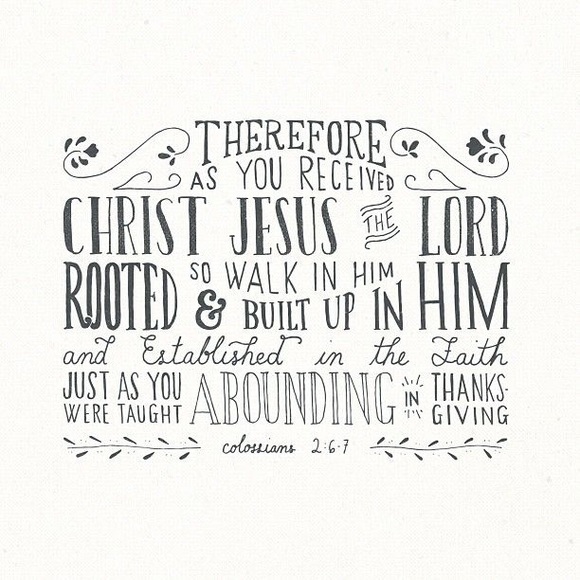 THEREFORE
AS YOU RECEIVED
CHRIST JESUS THE LORD
SO WALK IN HIM
ROOTED & BUILT UP IN HIM
and Established in the Faith
JUST AS YOU WERE TAUGHT
ABOUNDING IN
THANKS-
GIVING
colossians 2:6-7